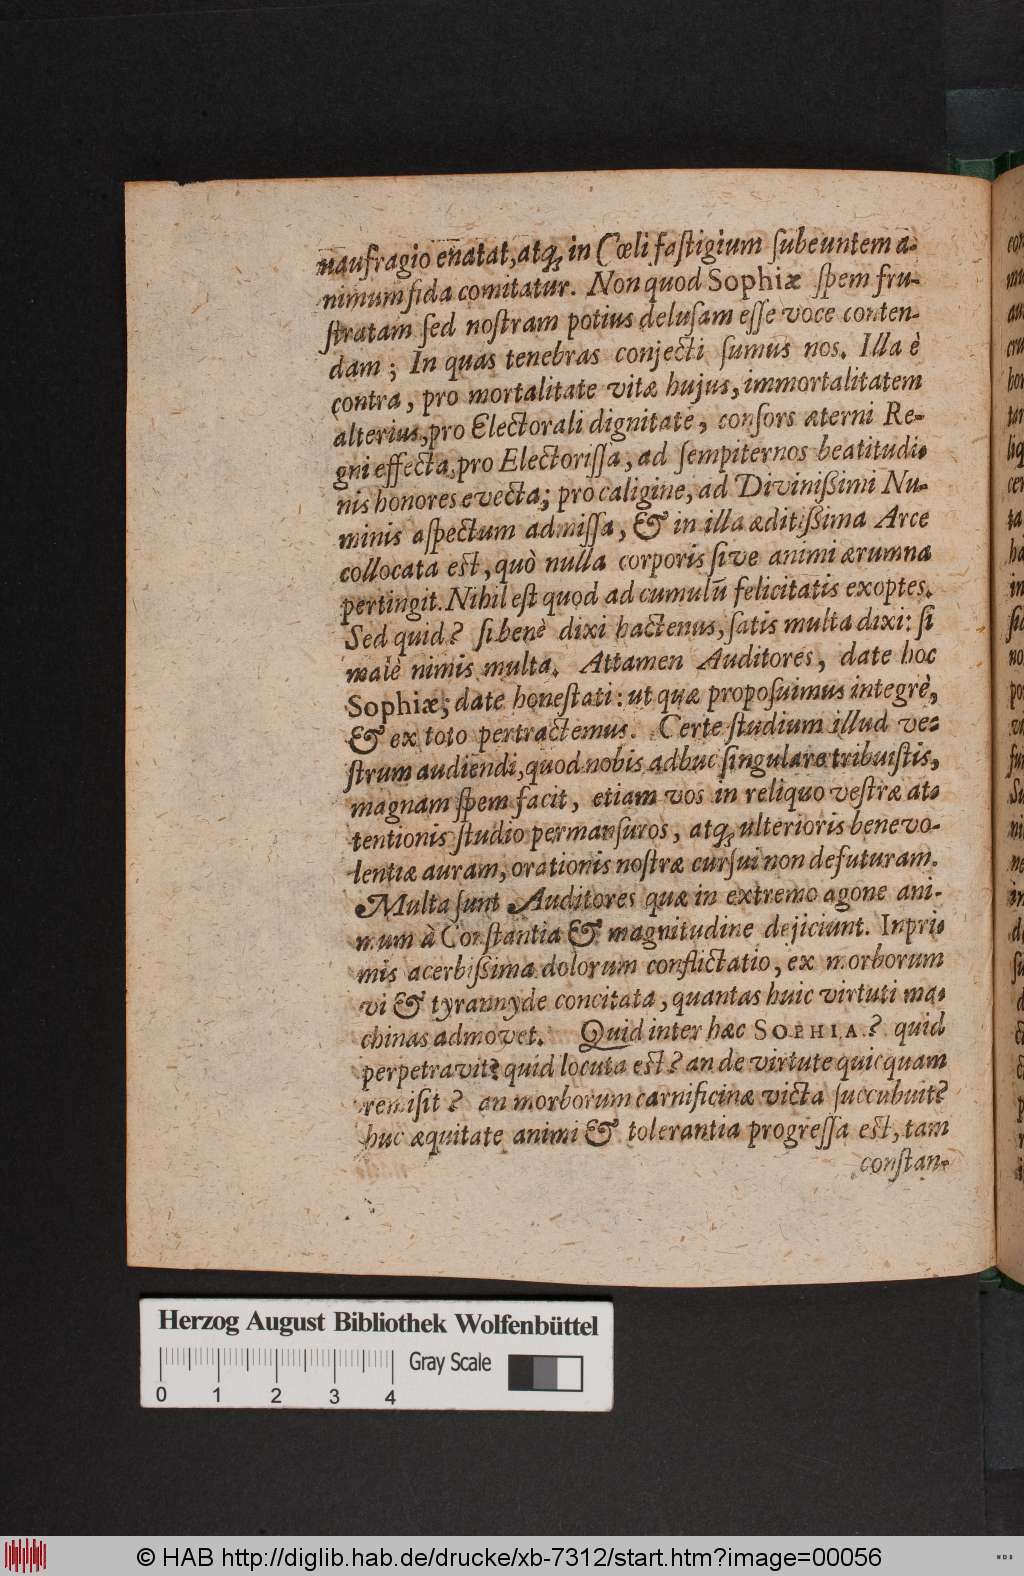 naufragio enatat, atq; in Cœli faſtigium ſubeuntem a-
nimum fida comitatur. Non quod Sophiæ ſpem fru-
ſtratam ſed noſtram potius deluſam eſſe voce conten-
dam; In quas tenebras conjecti ſumus nos. Illa è
contra, pro mortalitate vitæ hujus, immortalitatem
alterius, pro Electorali dignitate, conſors æterni Re-
gni effecta, pro Electoriſſa, ad ſempiternos beatitudi-
nis honores evecta; pro caligine, ad Divinißimi Nu-
minis aſpectum admiſſa, & in illa æditißima Arce
collocata eſt, quò nulla corporis ſive animi ærumna
pertingit. Nihil eſt quod ad cumulū felicitatis exoptes.
Sed quid? ſi benè dixi hactenus, ſatis multa dixi: ſi
malè nimis multa. Attamen Auditores, date hoc
Sophiæ; date honeſtati: ut quæ propoſuimus integrè,
& ex toto pertractemus. Certe ſtudium illud ve-
ſtrum audiendi, quod nobis adhuc ſingulare tribuiſtis,
magnam ſpem facit, etiam vos in reliquo veſtræ at-
tentionis ſtudio permanſuros, atq; ulterioris benevo-
lentiæ auram, orationis noſtræ curſui non defuturam.
Multa ſunt Auditores quæ in extremo agone ani-
mum à Conſtantia & magnitudine dejiciunt. Inpri-
mis acerbißima dolorum conflictatio, ex morborum
vi & tyrannyde concitata, quantas huic virtuti ma-
chinas admovet. Quid inter hæc SOPHIA? quid
perpetravit? quid locuta eſt? an de virtute quicquam
remiſit? an morborum carnificinæ victa ſuccubuit?
huc æquitate animi & tolerantia progreſſa eſt, tam
conſtan-
Herzog August Bibliothek Wolfenbüttel
Gray Scale
0 1 2 3 4
© HAB http://diglib.hab.de/drucke/xb-7312/start.htm?image=00056